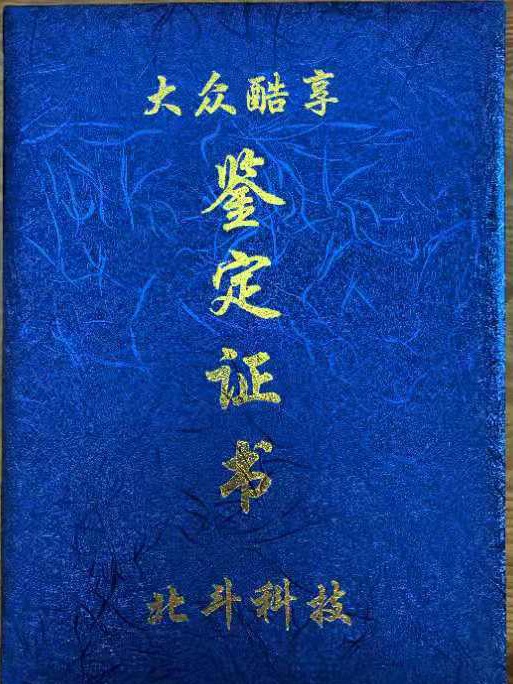 大众酷享
鉴定证书
北斗科技